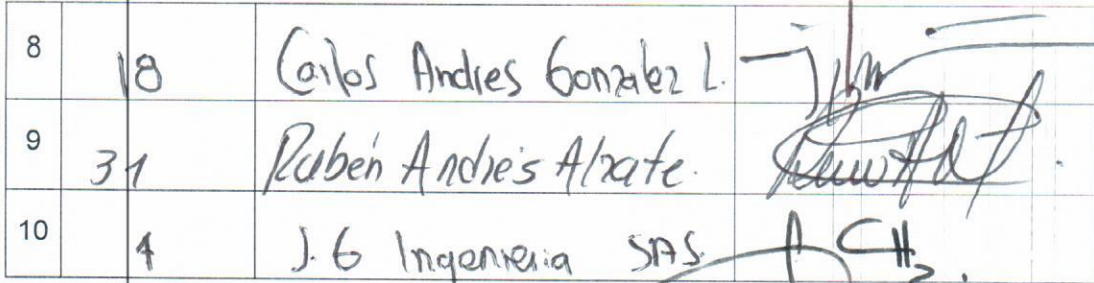 8 18 Carlos Andres Gonzalez L.
9 31 Rubén Andrés Alzate.
10 4 J.G Ingenieria SAS.